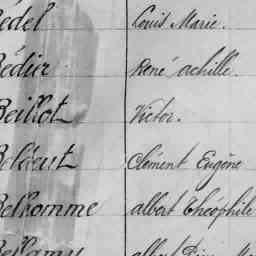 Bedel Louis Marie.
Bédier René Achille
Beillot Victor.
Clément Eugène
Belhomme Albert Théophile
Bellamy Albert